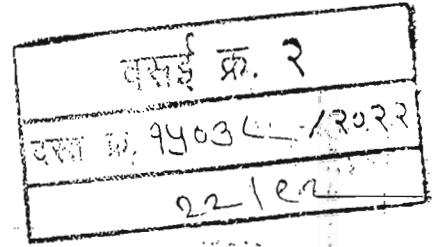 वसई क्र. २
दस्त क्र. १५०३८ /२०२२
२२/९२